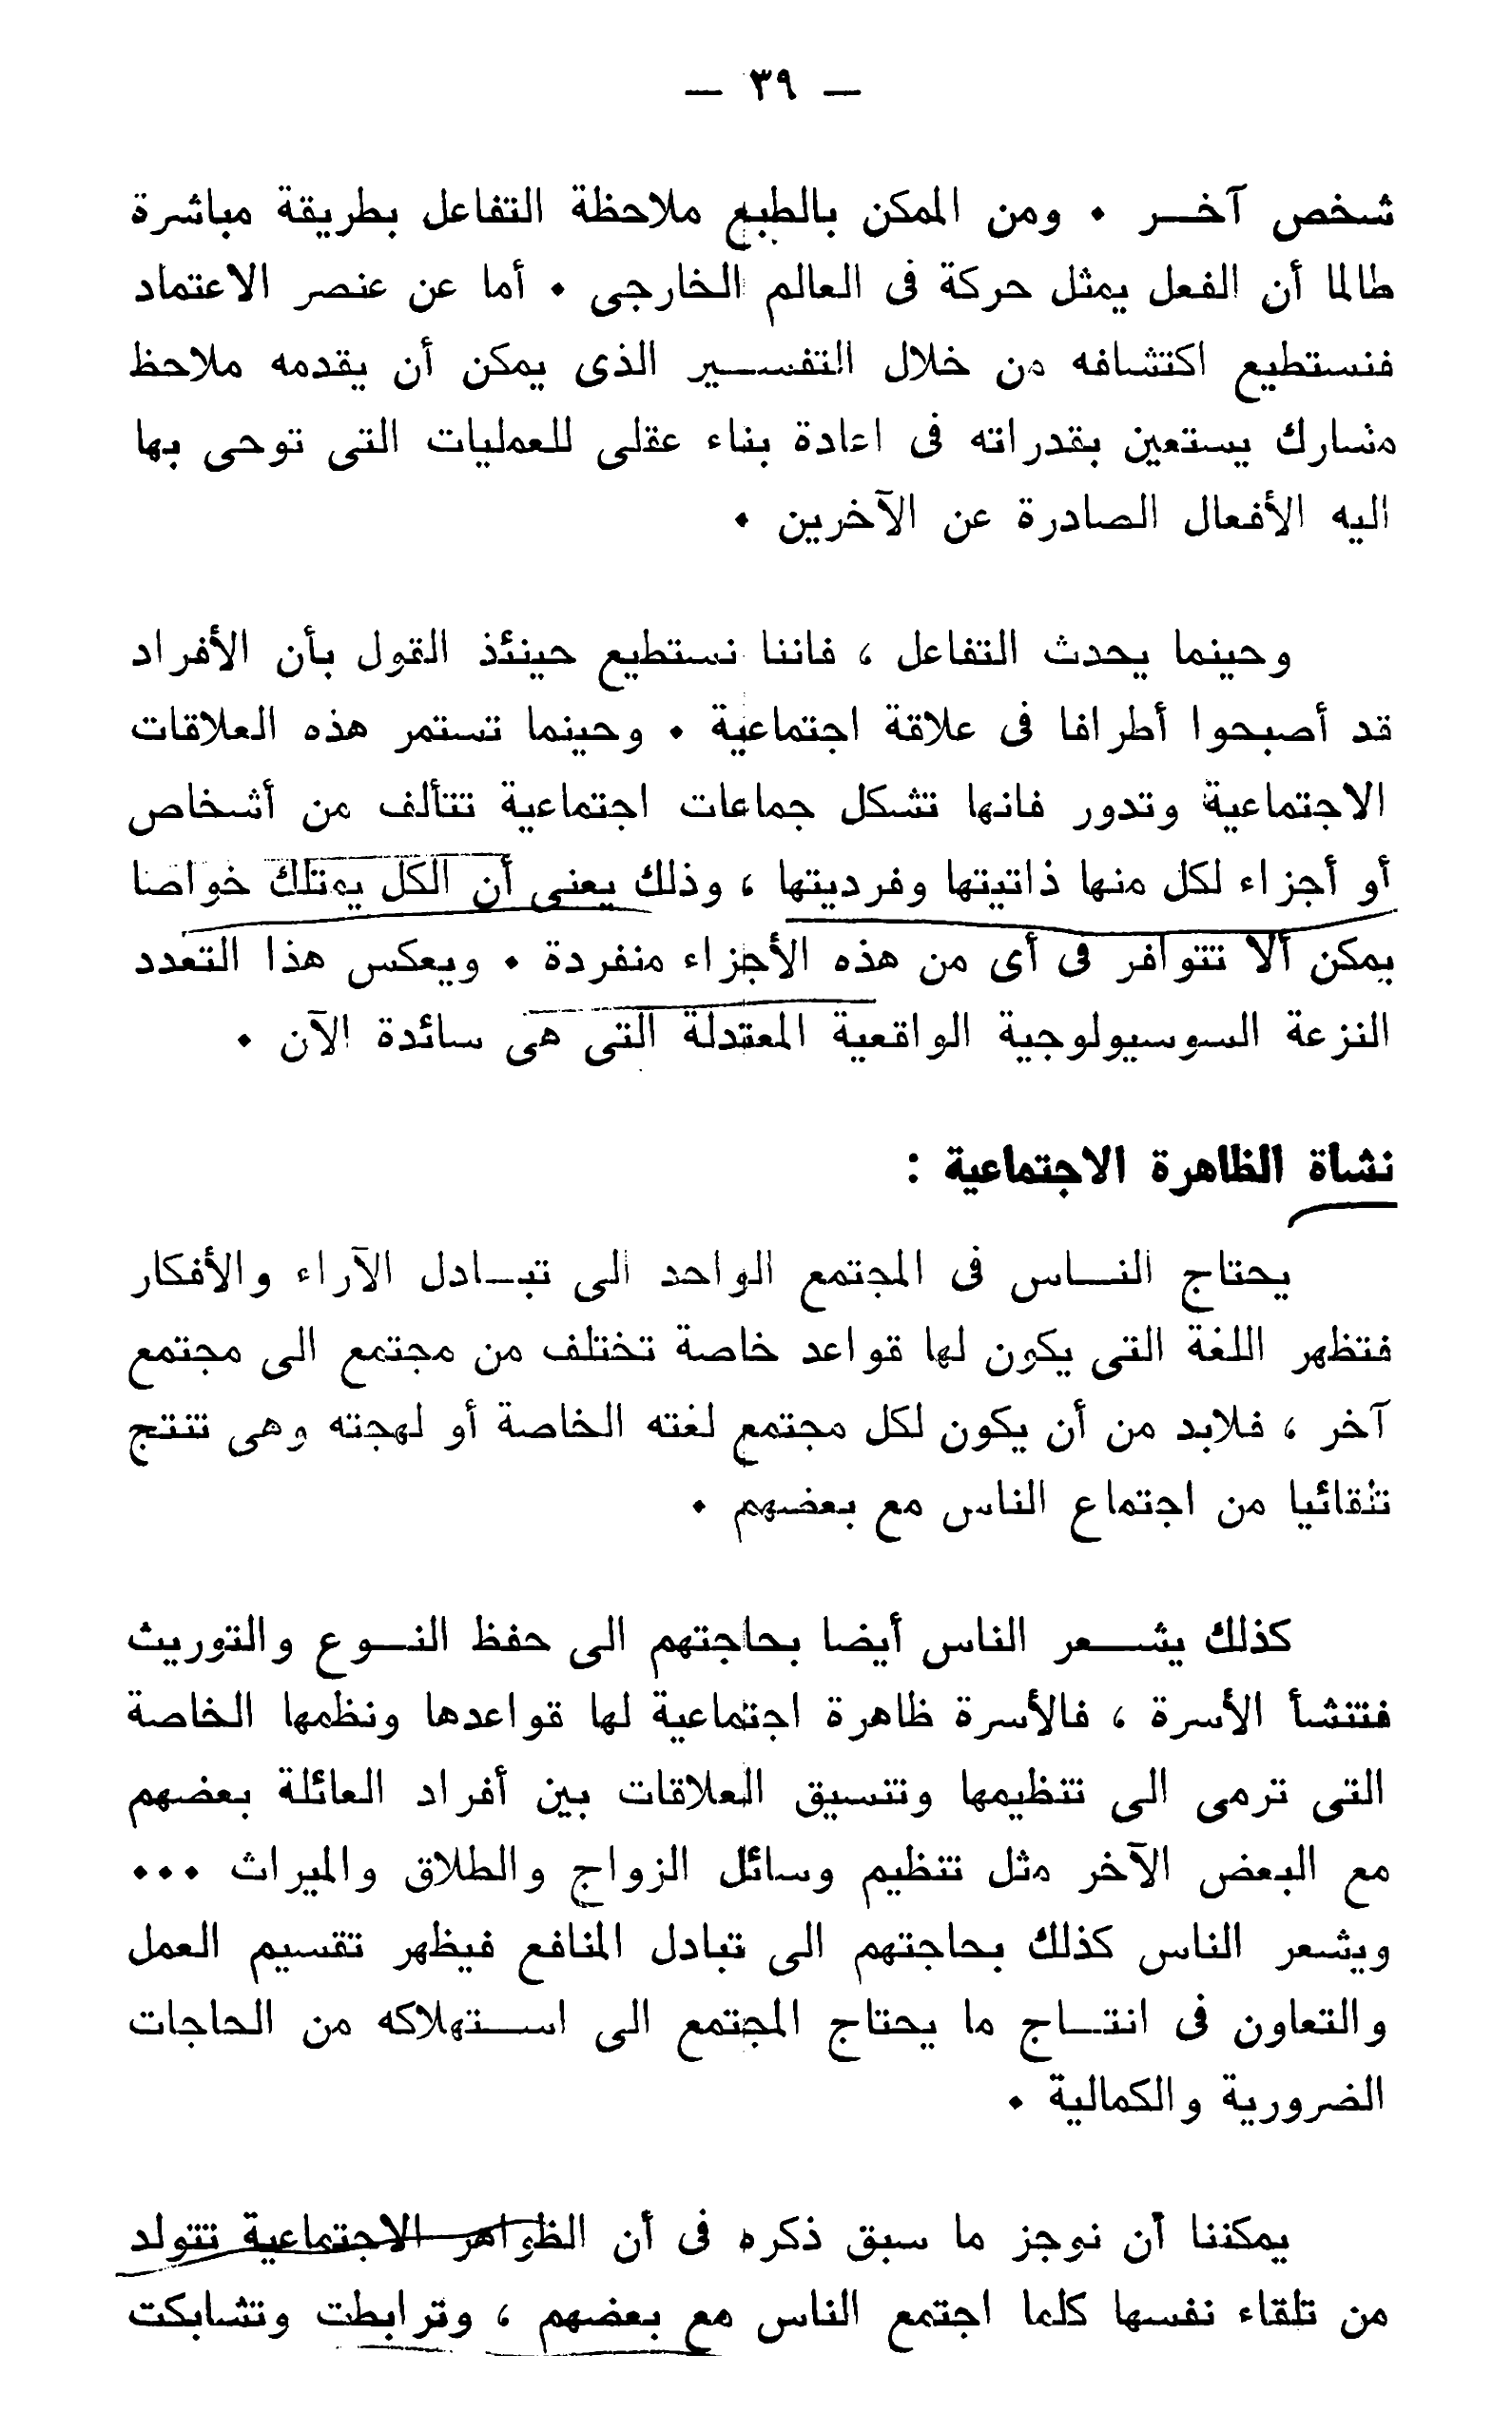 — ٣٩ —
شخص آخر ٠ ومن الممكن بالطبع ملاحظة التفاعل بطريقة مباشرة
طالما أن الفعل يمثل حركة فى العالم الخارجى ٠ أما عن عنصر الاعتماد
فنستطيع اكتشافه من خلال التفسير الذى يمكن أن يقدمه ملاحظ
مشارك يستعين بقدراته فى اعادة بناء عقلى للعمليات التى توحى بها
اليه الأفعال الصادرة عن الآخرين ٠
وحينما يحدث التفاعل ، فاننا نستطيع حينئذ القول بأن الأفراد
قد أصبحوا أطرافا فى علاقة اجتماعية ٠ وحينما تستمر هذه العلاقات
الاجتماعية وتدور فانها تشكل جماعات اجتماعية تتألف من أشخاص
أو أجزاء لكل منها ذاتيتها وفرديتها ، وذلك يعنى أن الكل يمتلك خواصا
يمكن ألا تتوافر فى أى من هذه الأجزاء منفردة ٠ ويعكس هذا التعدد
النزعة السوسيولوجية الواقعية المعتدلة التى هى سائدة الآن ٠
نشأة الظاهرة الاجتماعية :
يحتاج الناس فى المجتمع الواحد الى تبادل الآراء والأفكار
فتظهر اللغة التى يكون لها قواعد خاصة تختلف من مجتمع الى مجتمع
آخر ، فلابد من أن يكون لكل مجتمع لغته الخاصة أو لهجته وهى تنتج
تلقائيا من اجتماع الناس مع بعضهم ٠
كذلك يشعر الناس أيضا بحاجتهم الى حفظ النوع والتوريث
فتنشأ الأسرة ، فالأسرة ظاهرة اجتماعية لها قواعدها ونظمها الخاصة
التى ترمى الى تنظيمها وتنسيق العلاقات بين أفراد العائلة بعضهم
مع البعض الآخر مثل تنظيم وسائل الزواج والطلاق والميراث ٠٠٠
ويشعر الناس كذلك بحاجتهم الى تبادل المنافع فيظهر تقسيم العمل
والتعاون فى انتاج ما يحتاج المجتمع الى استهلاكه من الحاجات
الضرورية والكمالية ٠
يمكننا أن نوجز ما سبق ذكره فى أن الظواهر الاجتماعية تتولد
من تلقاء نفسها كلما اجتمع الناس مع بعضهم ، وترابطت وتشابكت